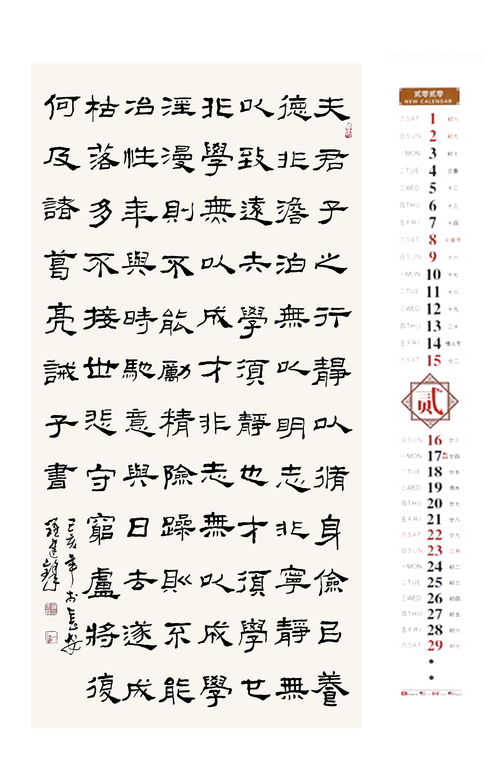 夫君子之行靜以脩身儉㠯養
德非澹泊無以明志非寧靜無
以致遠夫學須靜也才須學也
非學無以成才非志無以成學
淫漫則不能勵精險躁則不能
冶性年與時馳意與日去遂成
枯落多不接世悲守窮廬將復
何及諸葛亮誡子書
己亥年於長安
贰零贰零
NEW CALENDAR
六SAT 1 初八
日SUN 2 初九
一MON 3 初十
二TUE 4 立春
三WED 5 十二
四THU 6 十三
五FRI 7 十四
六SAT 8 元宵节
日SUN 9 十六
一MON 10 十七
二TUE 11 十八
三WED 12 十九
四THU 13 二十
五FRI 14 情人节
六SAT 15 廿二
贰
日SUN 16 廿三
一MON 17 廿四
二TUE 18 廿五
三WED 19 雨水
四THU 20 廿七
五FRI 21 廿八
六SAT 22 廿九
日SUN 23 二月
一MON 24 初二
二TUE 25 初三
三WED 26 初四
四THU 27 初五
五FRI 28 初六
六SAT 29 初七